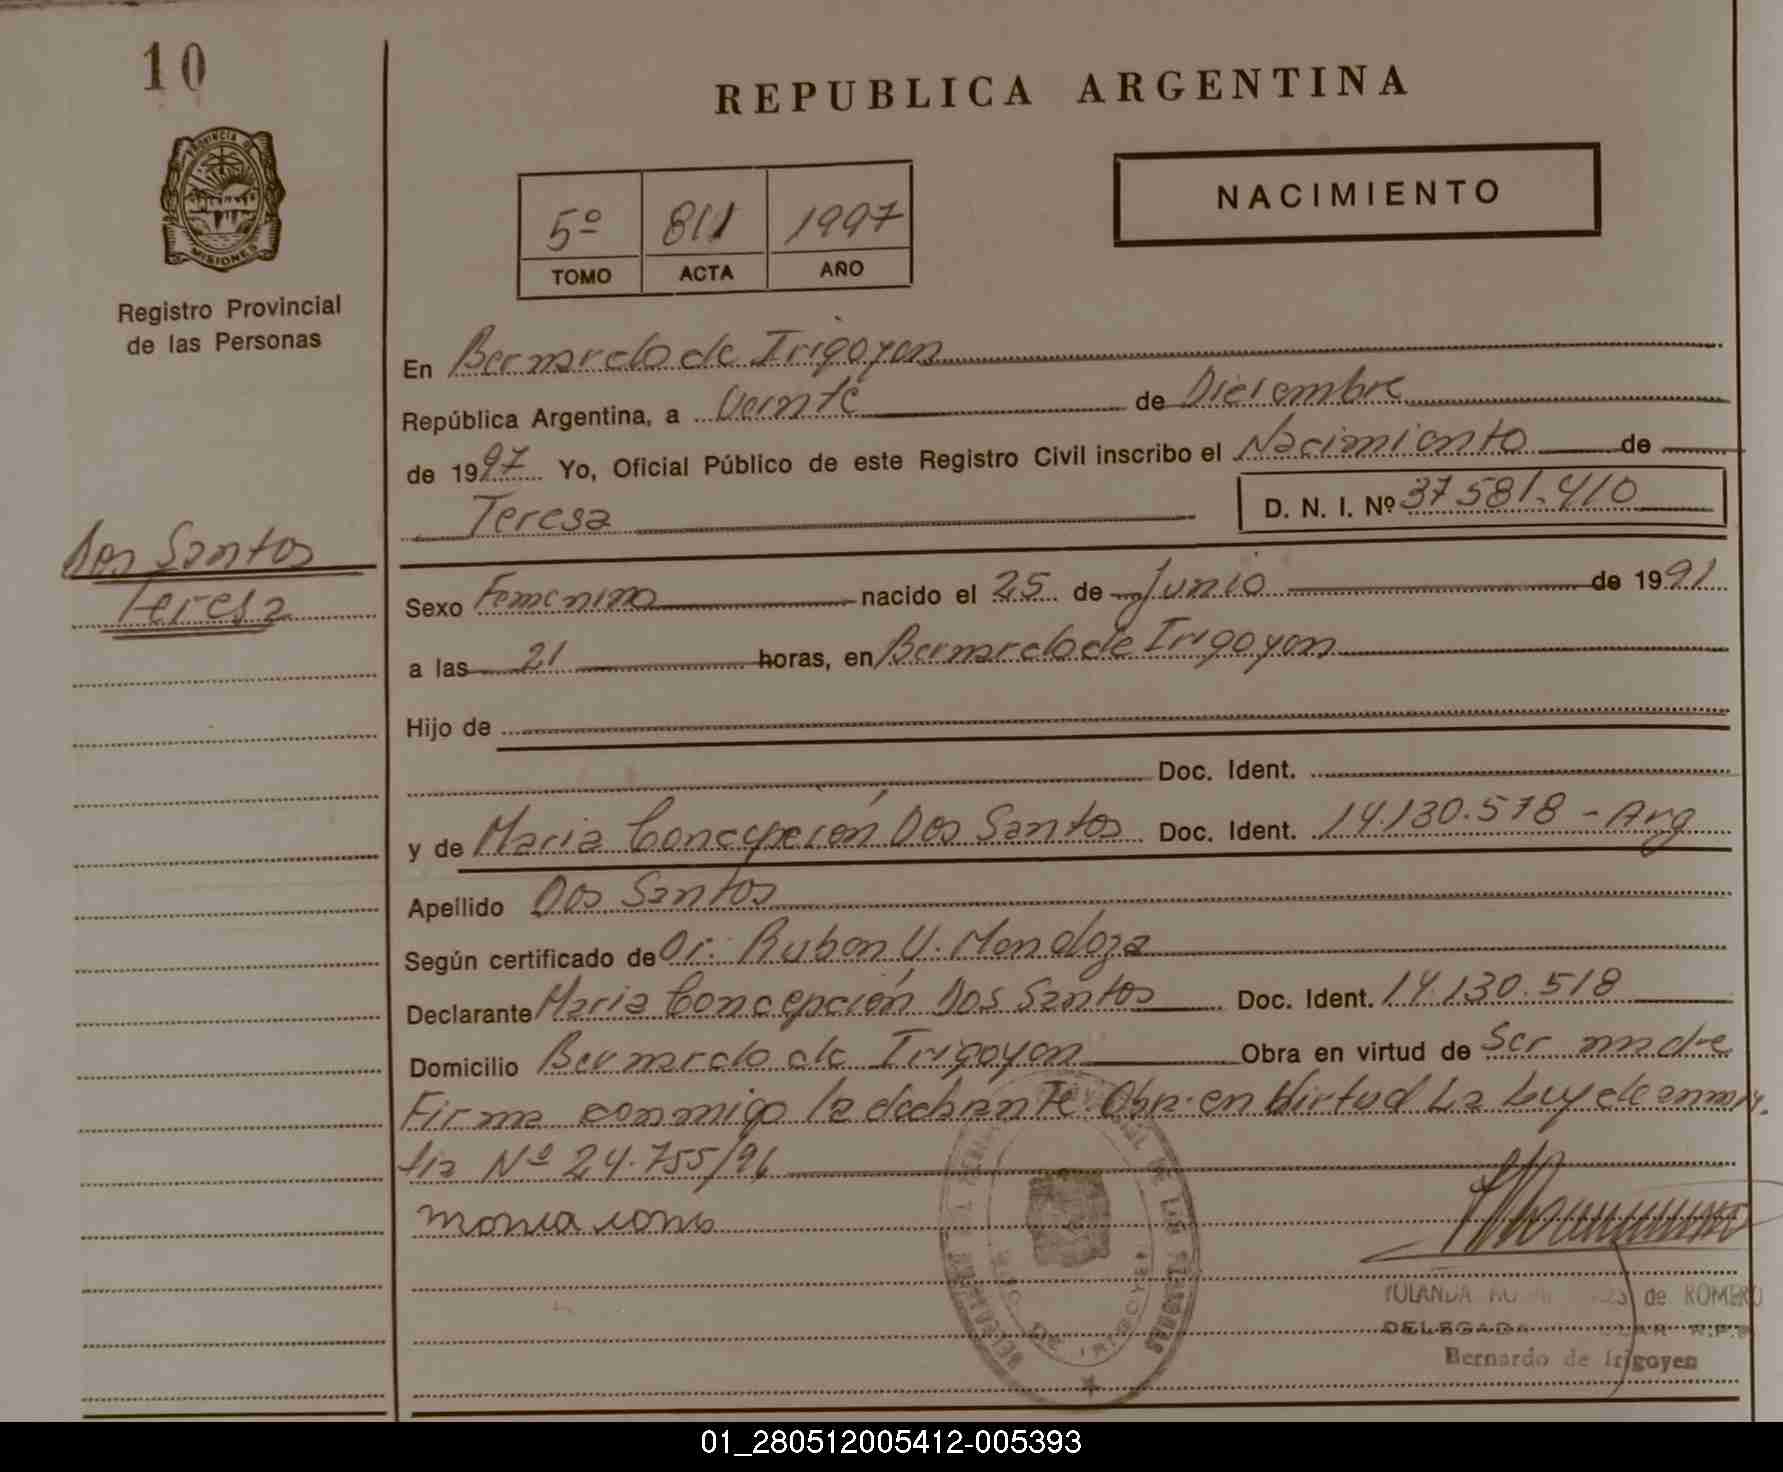 10
REPUBLICA ARGENTINA
PROVINCIA DE
MISIONES
Registro Provincial
de las Personas
5º 811 1997
TOMO ACTA AÑO
NACIMIENTO
En Bernardo de Irigoyen
República Argentina, a Veinte de Diciembre
de 1997 Yo, Oficial Público de este Registro Civil inscribo el Nacimiento de
Teresa D. N. I. Nº 37581.410
Dos Santos
Teresa
Sexo Femenino nacido el 25 de Junio de 1991
a las 21 horas, en Bernardo de Irigoyen
Hijo de
Doc. Ident.
y de Maria Concepción Dos Santos Doc. Ident. 14.130.518 - Arg
Apellido Dos Santos
Según certificado de Dr. Ruben V. Mendoza
Declarante Maria Concepción Dos Santos Doc. Ident. 14.130.518
Domicilio Bernardo de Irigoyen Obra en virtud de Ser madre
Firma conmigo la declarante. Obra en Virtud La Ley de amnis
tia Nº 24.755/96
YOLANDA de ROMERO
DELEGADA R.P.P.
Bernardo de Irigoyen
01_280512005412-005393